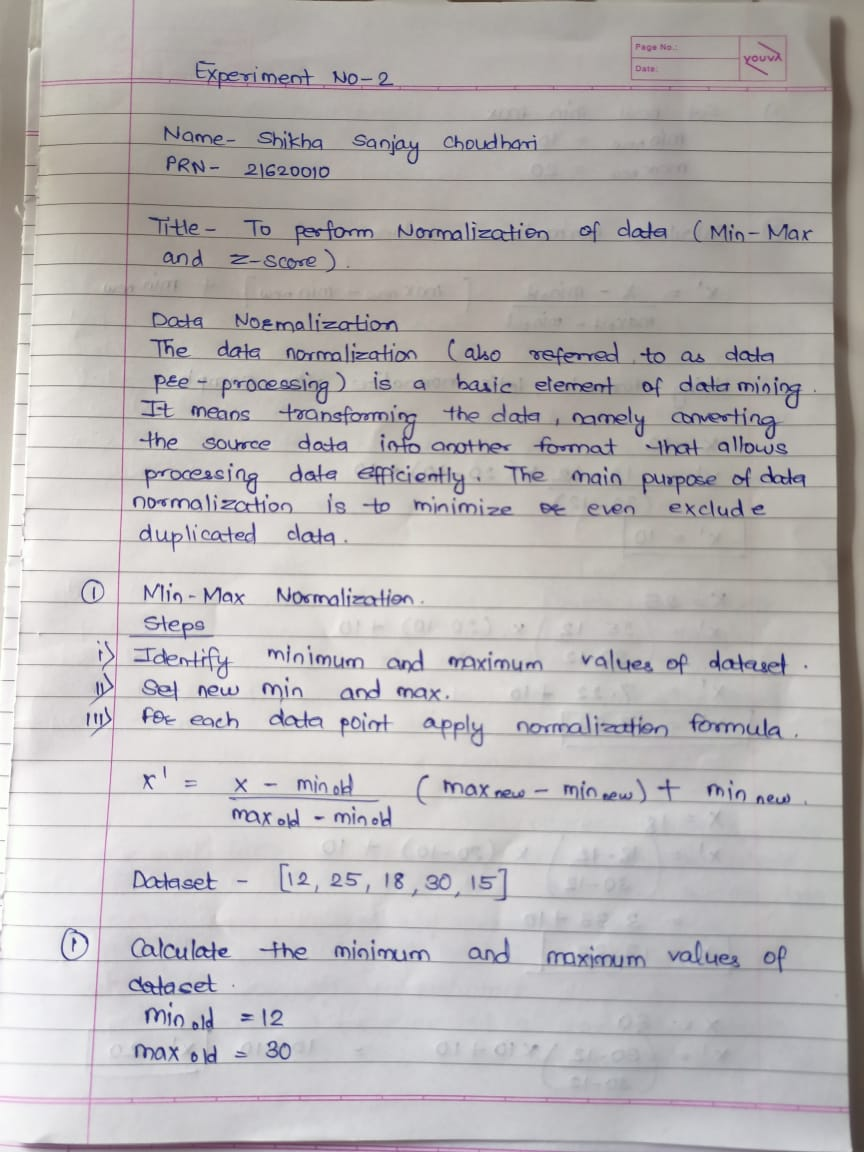 Page No.:
Date:
YOUVA
Experiment No-2
Name- Shikha Sanjay Choudhari
PRN- 21620010
Title- To perform Normalization of data (Min-Max
and z-score).
Data Noemalization
The data normalization (also referred to as data
pee-processing) is a basic element of data mining.
It means transforming the data, namely converting
the source data into another format that allows
processing data efficiently. The main purpose of data
normalization is to minimize oe even exclude
duplicated data.
① Min-Max Normalization.
Steps
i) Identify minimum and maximum values of dataset.
ii) Set new min and max.
iii) foe each data point apply normalization formula.
x' = x - min old (max new - min new) + min new.
max old - min old
Dataset - [12, 25, 18, 30, 15]
① Calculate the minimum and maximum values of
dataset.
min old = 12
max old = 30